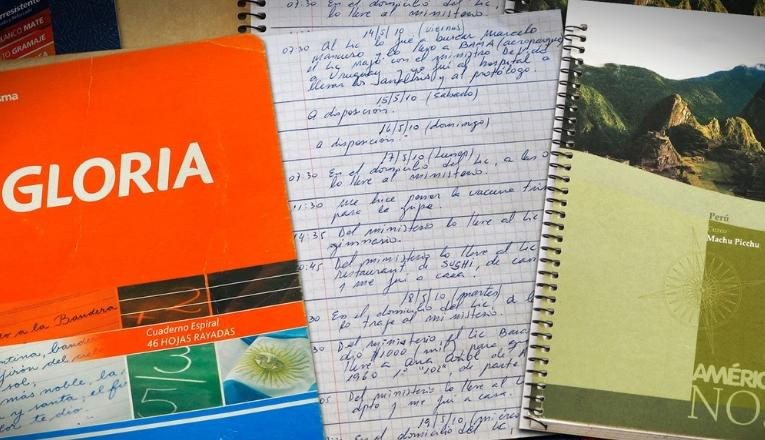 rresistente
BLANCO MATE
O GRAMAJE
sma
GLORIA
a la Bandera
Cuaderno Espiral
46 HOJAS RAYADAS
más noble, la
y santa, el
te dio.
07:30 En el domicilio del Lic,
lo llevé al ministerio.
14/5/10 (viernes)
07:30 Al Lic lo fui a buscar Marcelo
y lo llevó a BAMA (aeroparque)
el Lic viajó con el ministro De Vido
a Uruguay y yo fui al hospital a
llevar los y al
15/5/10 (sábado)
A disposición.
16/5/10 (domingo)
a disposición.
17/5/10 (Lunes)
07:30 En el domicilio del Lic, a las
lo llevé al ministerio.
11:30 me hice poner la vacuna
para la gripe.
14:35 Del ministerio lo llevé al Lic
gimnasio.
0:45 Del ministerio lo llevé al Lic
restaurant de SUSHI, de
y me fui a casa.
18/5/10 (martes)
30 En el domicilio del Lic, a
lo traje al ministerio.
30 Del ministerio, el Lic
dijo $1000 (mil) para
llevé a
1960 1º "10", de parte
05 Del ministerio lo llevé al
dpto y me fui a casa.
19/5/10
30 En el domicilio del Lic,
Perú
Cusco
Machu Picchu
AMÉRIC
NO